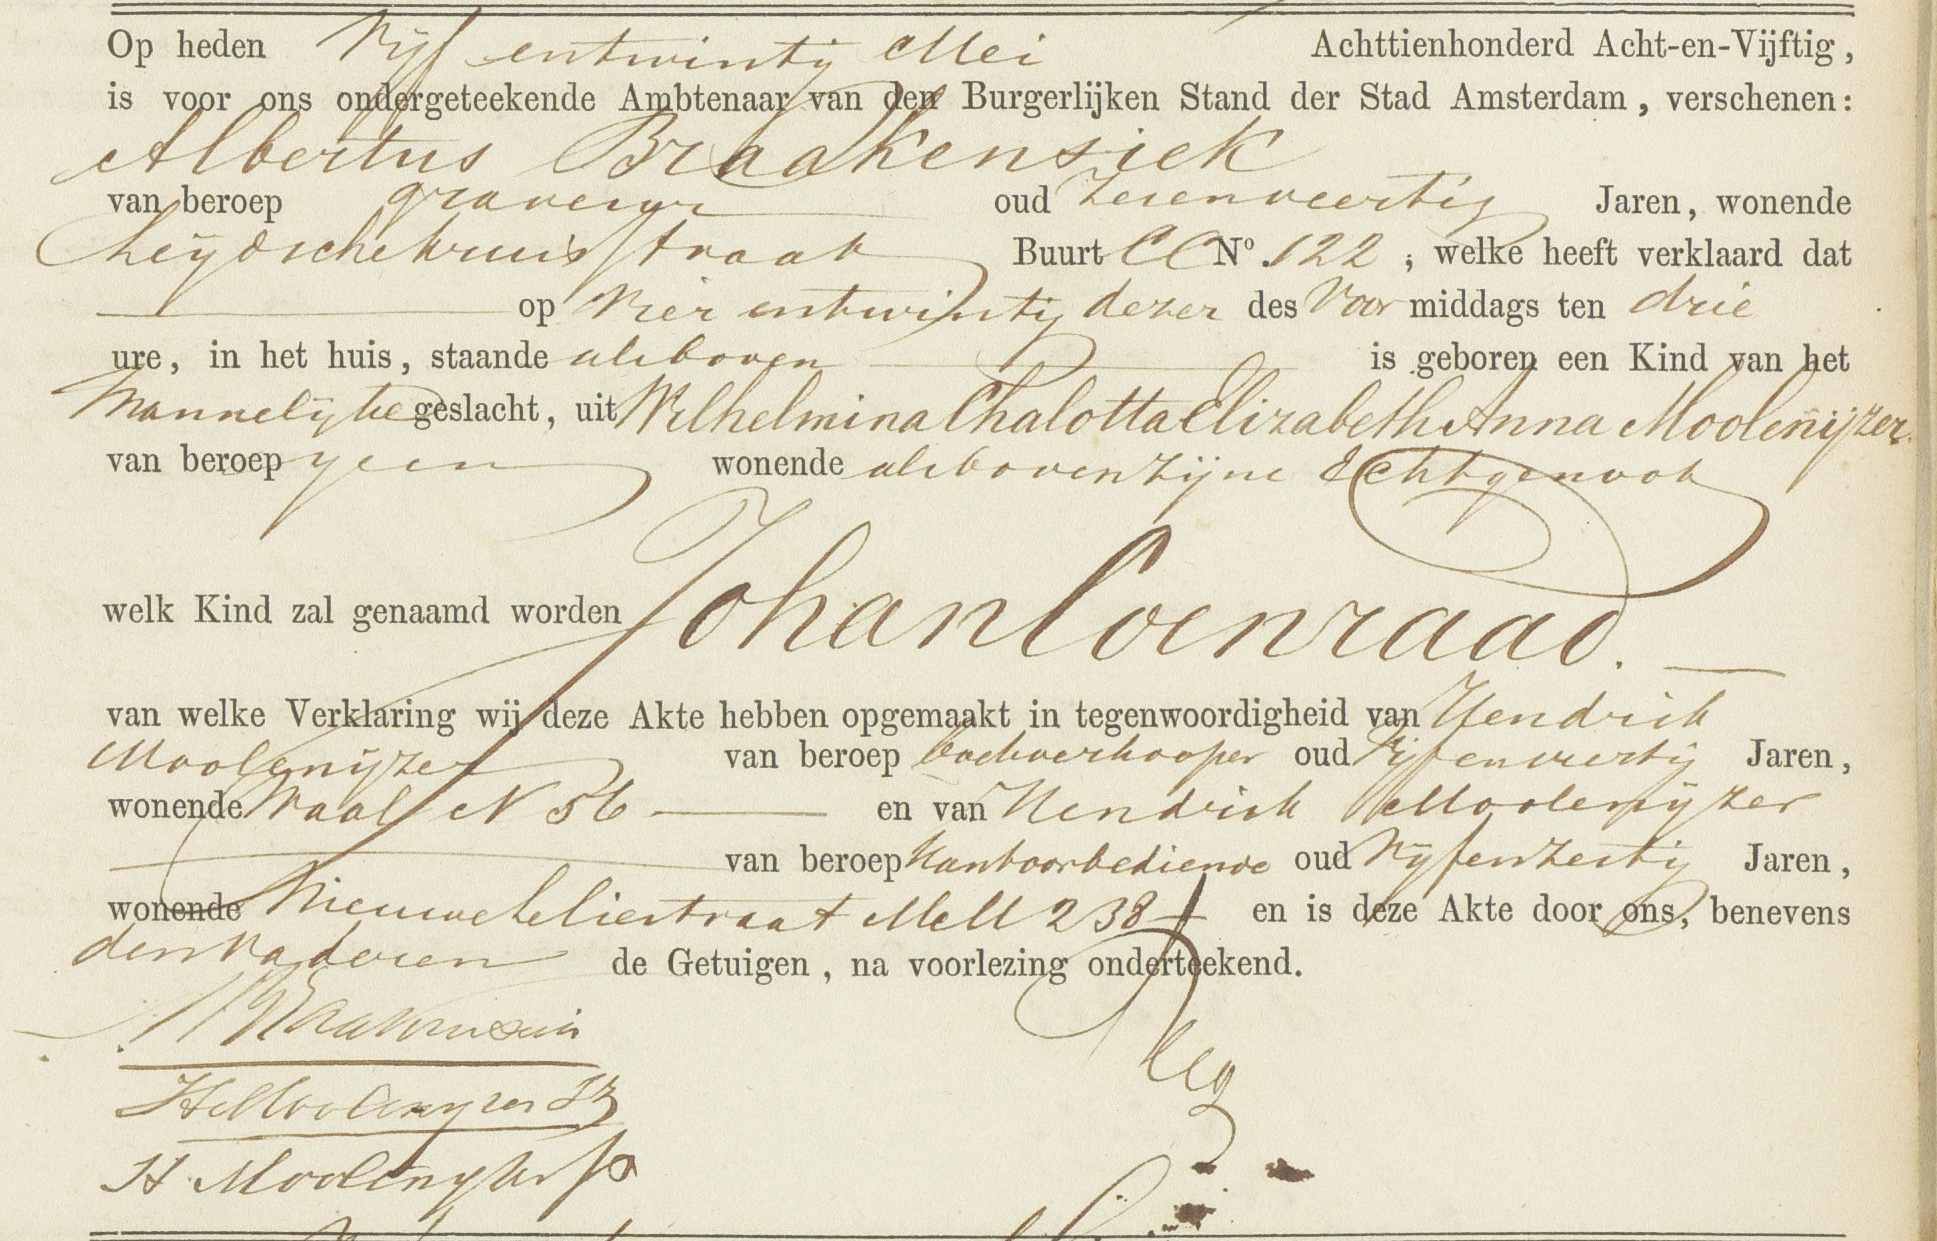 Op heden Vijf entwintig Mei Achttienhonderd Acht-en-Vijftig,
is voor ons ondergeteekende Ambtenaar van den Burgerlijken Stand der Stad Amsterdam, verschenen:
Albertus Braakensiek
van beroep graveur oud zesenveertig Jaren, wonende
Leydschekruisstraat Buurt CC No. 122, welke heeft verklaard dat
op Vier entwintig dezer des Voor middags ten drie
ure, in het huis, staande alsboven is geboren een Kind van het
Mannelijke geslacht, uit Wilhelmina Chalotta Elizabeth Anna Moolenijzer
van beroep geen wonende alsboven zijne Echtgenoot
welk Kind zal genaamd worden Johan Coenraad.
van welke Verklaring wij deze Akte hebben opgemaakt in tegenwoordigheid van Hendrik
Moolenijzer van beroep boekverkooper oud Vijfenveertig Jaren,
wonende Waal N 56 en van Hendrik Moolenijzer
van beroep Kantoorbediende oud Vijfenzestig Jaren,
wonende Nieuwe Leliestraat MM 238 en is deze Akte door ons, benevens
den Vader en de Getuigen, na voorlezing onderteekend.
A Braakensiek
H Moolenijzer Hz
H. Moolenijzer